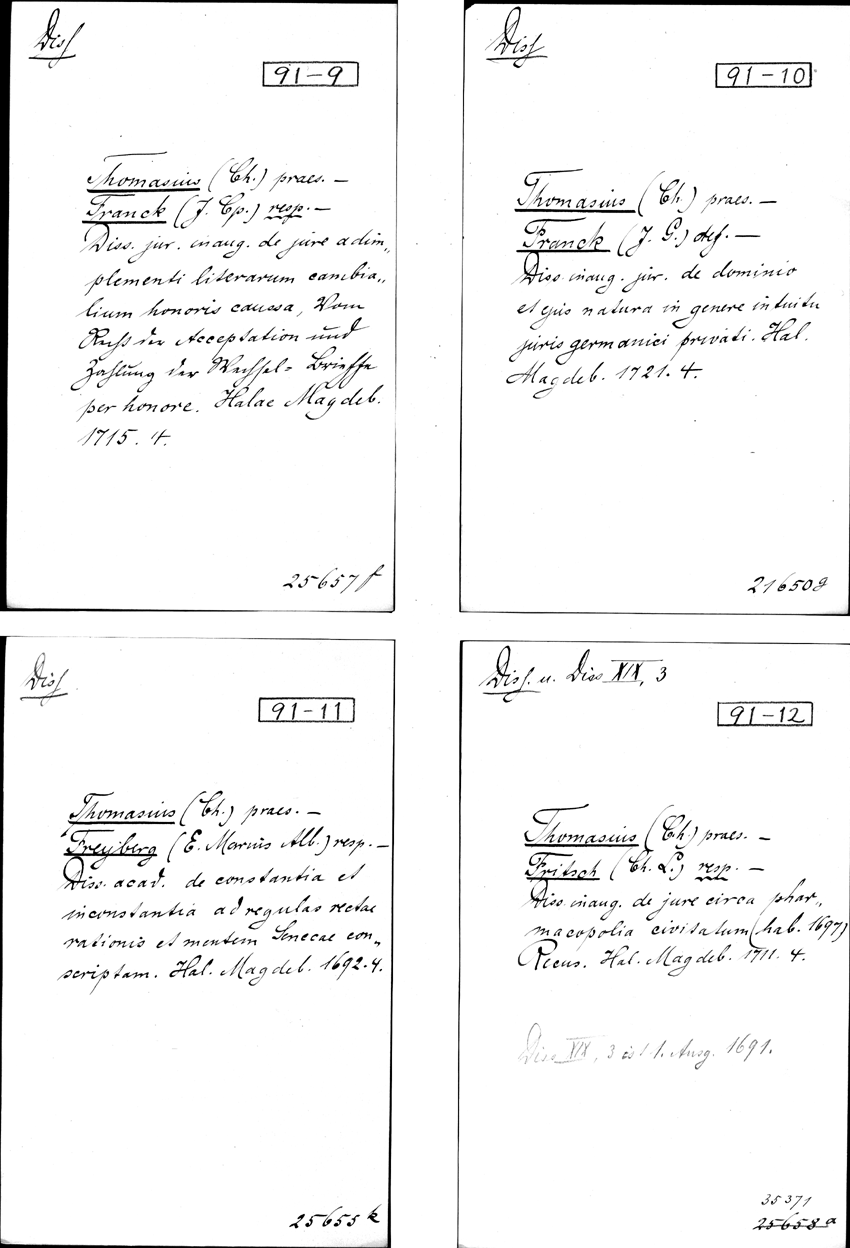 Diss
91-9
Thomasius (Ch.) praes. —
Franck (J. Cp.) resp. —
Diss. jur. inaug. de jure adim„
plementi literarum cambia„
lium honoris caussa, Vom
Recht der Acceptation und
Zahlung der Wechsel= Brieffe
per honore. Halae Magdeb.
1715. 4.
25657 f
Diss
91-10
Thomasius (Ch.) praes. —
Franck (J. G.) def. —
Diss. inaug. jur. de dominio
et ejus natura in genere intuitu
juris germanici privati. Hal.
Magdeb. 1721. 4.
21650 g
Diss
91-11
Thomasius (Ch.) praes. —
Freyberg (E. Marius Alb.) resp. —
Diss. acad. de constantia et
inconstantia ad regulas rectae
rationis et mentem Senecae con„
scriptam. Hal. Magdeb. 1692. 4.
25655 k
Diss. u. Diss XIX, 3
91-12
Thomasius (Ch.) praes. —
Fritsch (Ch. L.) resp. —
Diss. inaug. de jure circa phar„
macopolia civitatum (hab. 1697)
Recus. Hal. Magdeb. 1711. 4.
Diss XIX, 3 ist 1. Ausg. 1691.
35371
25658 a